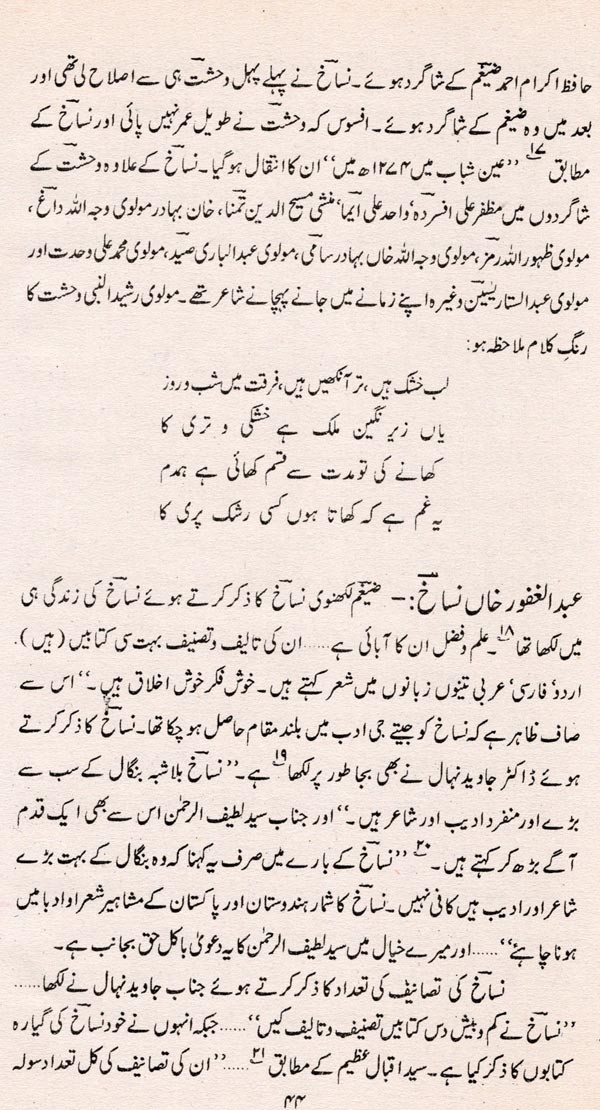 حافظ اکرام احمد ضیغم کے شاگرد ہوئے۔ نساخ نے پہلے پہل وحشت ہی سے اصلاح لی تھی اور
بعد میں وہ ضیغم کے شاگرد ہوئے۔ افسوس کہ وحشت نے طویل عمر نہیں پائی اور نساخ کے
مطابق ۱۷ ’’عین شباب میں ۱۲۷۴ھ میں‘‘ ان کا انتقال ہوگیا۔ نساخ کے علاوہ وحشت کے
شاگردوں میں مظفر علی افسردہ، واحد علی ایما، منشی مسیح الدین تمنا، خان بہادر مولوی وجہ اللہ داغ،
مولوی ظہور اللہ رمز، مولوی وجہ اللہ خاں بہادر سامی، مولوی عبدالباری صید، مولوی محمد علی وحدت اور
مولوی عبدالستار یٰسین وغیرہ اپنے زمانے میں جانے پہچانے شاعر تھے۔ مولوی رشید النبی وحشت کا
رنگِ کلام ملاحظہ ہو:
لب خشک ہیں، تر آنکھیں ہیں، فرقت میں شب و روز
یاں زیر نگین ملک ہے خشکی و تری کا
کھانے کی تو مدت سے قسم کھائی ہے ہمدم
یہ غم ہے کہ کھاتا ہوں کسی رشک پری کا
عبدالغفور خاں نساخ:۔ ضیغم لکھنوی نساخ کا ذکر کرتے ہوئے نساخ کی زندگی ہی
میں لکھا تھا ۱۸۔ علم و فضل ان کا آبائی ہے......ان کی تالیف و تصنیف بہت سی کتابیں (ہیں)۔
اردو، فارسی، عربی تینوں زبانوں میں شعر کہتے ہیں۔ خوش فکر خوش اخلاق ہیں۔‘‘ اس سے
صاف ظاہر ہے کہ نساخ کو جیتے جی ادب میں بلند مقام حاصل ہو چکا تھا۔ نساخ کا ذکر کرتے
ہوئے ڈاکٹر جاوید نہال نے بھی بجا طور پر لکھا ۱۹ ہے۔’’نساخ بلاشبہ بنگال کے سب سے
بڑے اور منفرد ادیب اور شاعر ہیں۔‘‘ اور جناب سید لطیف الرحمٰن اس سے بھی ایک قدم
آگے بڑھ کر کہتے ہیں۔ ۲۰ ’’نساخ کے بارے میں صرف یہ کہنا کہ وہ بنگال کے بہت بڑے
شاعر اور ادیب ہیں کافی نہیں۔ نساخ کا شمار ہندوستان اور پاکستان کے مشاہیر شعرا و ادبا میں
ہونا چاہئے‘‘......اور میرے خیال میں سید لطیف الرحمٰن کا یہ دعویٰ بالکل حق بجانب ہے۔
نساخ کی تصانیف کی تعداد کا ذکر کرتے ہوئے جناب جاوید نہال نے لکھا......
’’نساخ نے کم و بیش دس کتابیں تصنیف و تالیف کیں‘‘......جبکہ انہوں نے خود نساخ کی گیارہ
کتابوں کا ذکر کیا ہے۔ سید اقبال عظیم کے مطابق ۲۱......’’ان کی تصانیف کی کل تعداد سولہ
۴۴